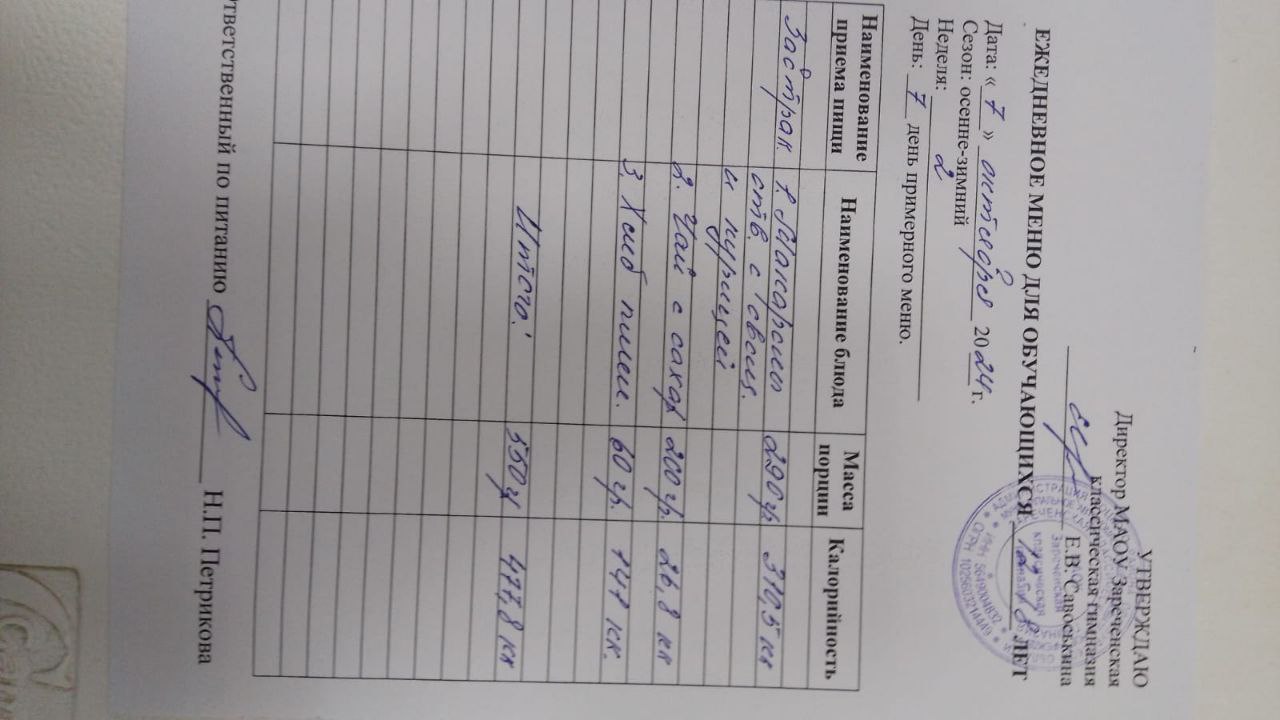 УТВЕРЖДАЮ
Директор МАОУ Зареченская
классическая гимназия
Е.В. Савоськина
ЕЖЕДНЕВНОЕ МЕНЮ ДЛЯ ОБУЧАЮЩИХСЯ ЛЕТ
Дата: « 7 » октября 2024 г.
Сезон: осенне-зимний
Неделя: 2
День: 7 день примерного меню.
Наименование приема пищи Наименование блюда Масса порции Калорийность
Завтрак 1. Макароны
отв. с овощ. 290 гр 310,5 кк
и курицей
2. Чай с сахар 200 гр. 26,8 кк
3. Хлеб пшен. 60 гр. 141 кк.
Итого: 550 гр 477,8 кк
тветственный по питанию Н.П. Петрикова
ИНН 5649004832
ОГРН 1025603214449